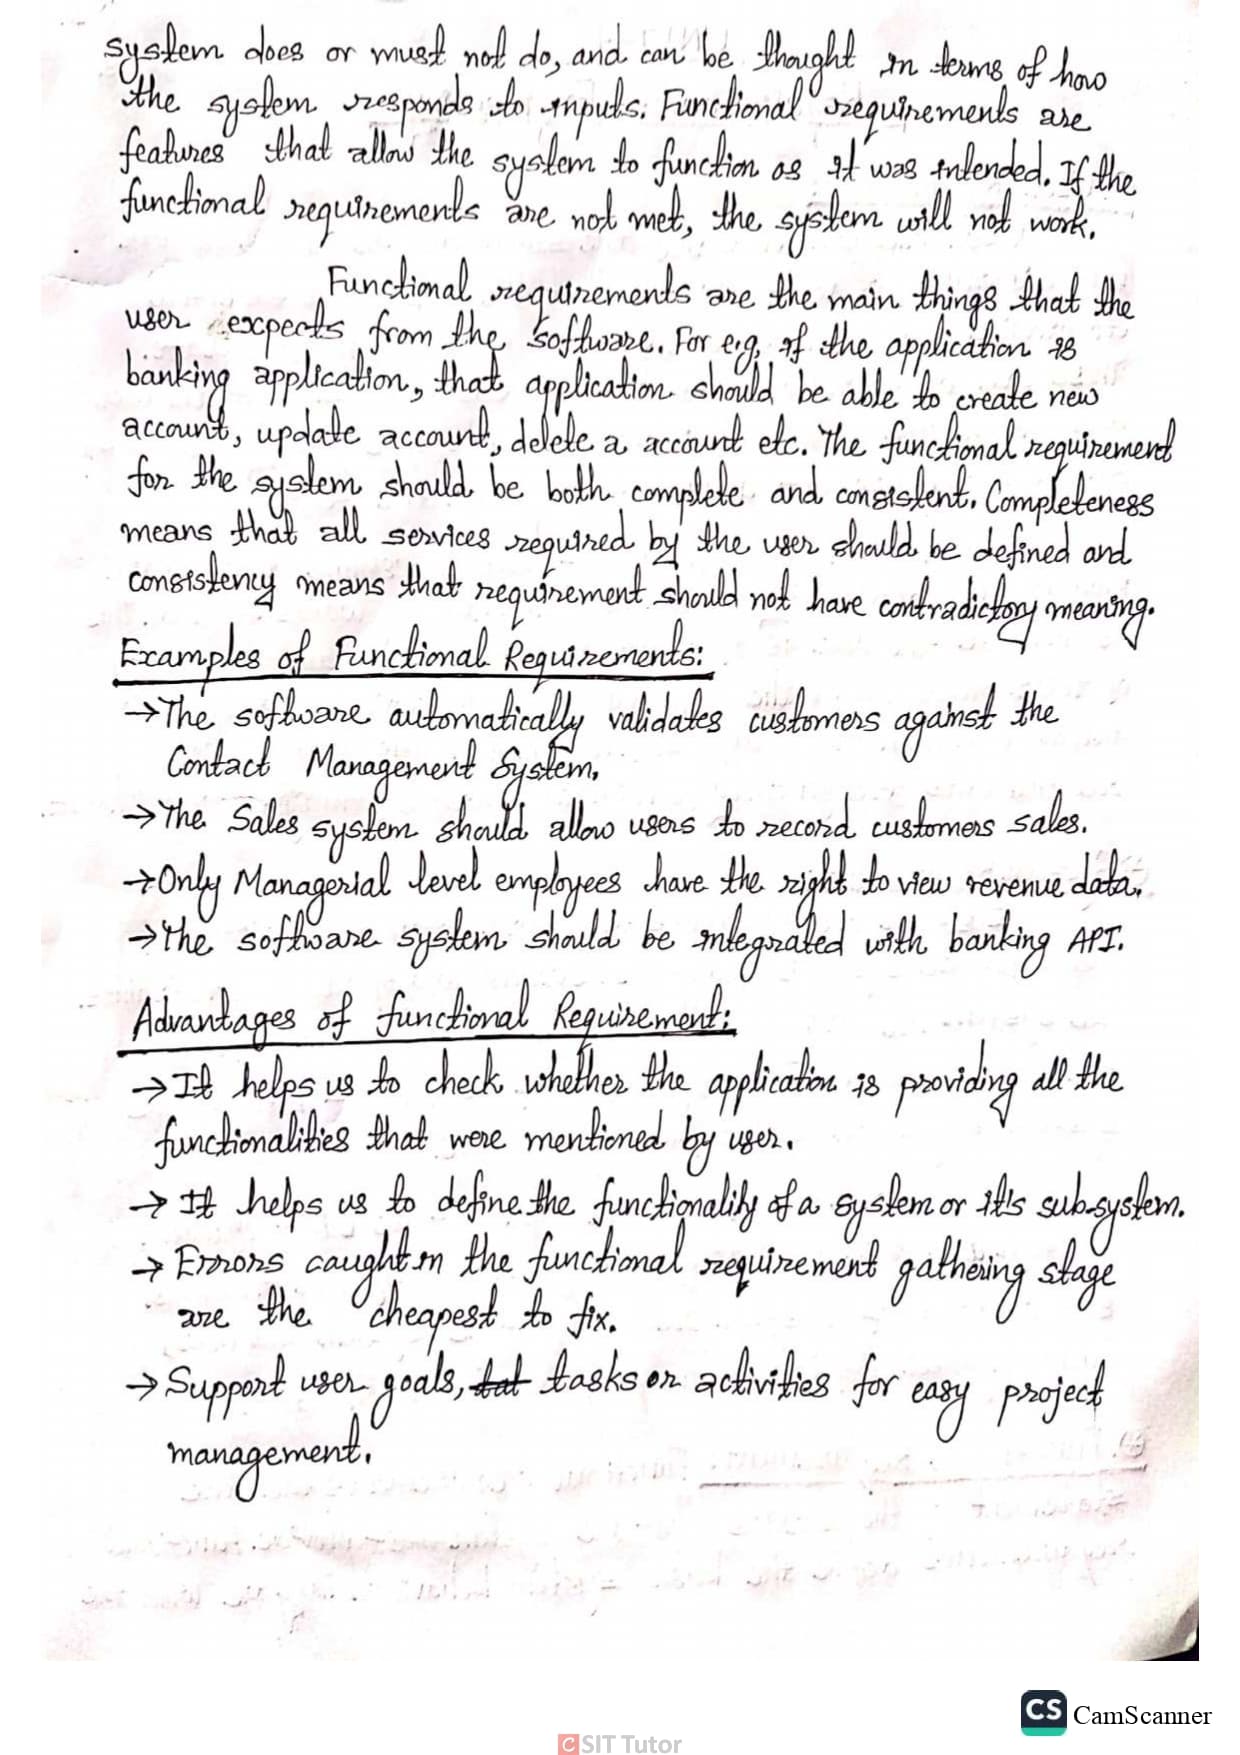 system does or must not do, and can be thought in terms of how
the system responds to inputs. Functional requirements are
features that allow the system to function as it was intended. If the
functional requirements are not met, the system will not work.
Functional requirements are the main things that the
user expects from the software. For e.g, if the application is
banking application, that application should be able to create new
account, update account, delete a account etc. The functional requirement
for the system should be both complete and consistent. Completeness
means that all services required by the user should be defined and
consistency means that requirement should not have contradictory meaning.
Examples of Functional Requirements:
→The software automatically validates customers against the
Contact Management System.
→The Sales system should allow users to record customers sales.
→Only Managerial level employees have the right to view revenue data.
→The software system should be integrated with banking API.
Advantages of functional Requirement:
→It helps us to check whether the application is providing all the
functionalities that were mentioned by user.
→ It helps us to define the functionality of a system or it's sub-system.
→ Errors caught in the functional requirement gathering stage
are the cheapest to fix.
→ Support user goals, tat tasks or activities for easy project
management.
CS CamScanner
CSIT Tutor